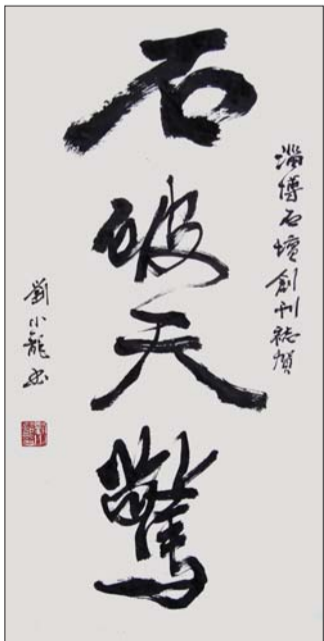 淄博石壇創刊誌賀
石破天驚
劉小龍書